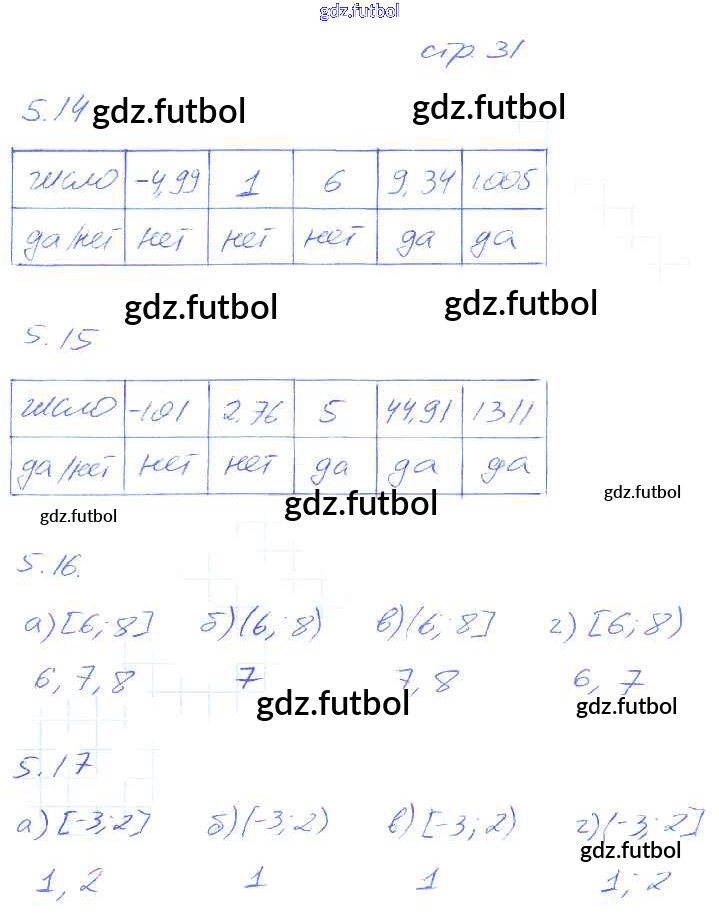 gdz.futbol
стр. 31
5.14 gdz.futbol gdz.futbol
число -4,99 1 6 9,34 1005
да/нет нет нет нет да да
gdz.futbol gdz.futbol
5.15
число -101 2,76 5 44,91 1311
да/нет нет нет да да да
gdz.futbol gdz.futbol gdz.futbol
5.16.
а) [6; 8] б) (6; 8) в) (6; 8] г) [6; 8)
6, 7, 8 7 7, 8 6, 7
gdz.futbol gdz.futbol
5.17
а) [-3; 2] б) (-3; 2) в) [-3; 2) г) (-3; 2]
gdz.futbol
1, 2 1 1 1; 2